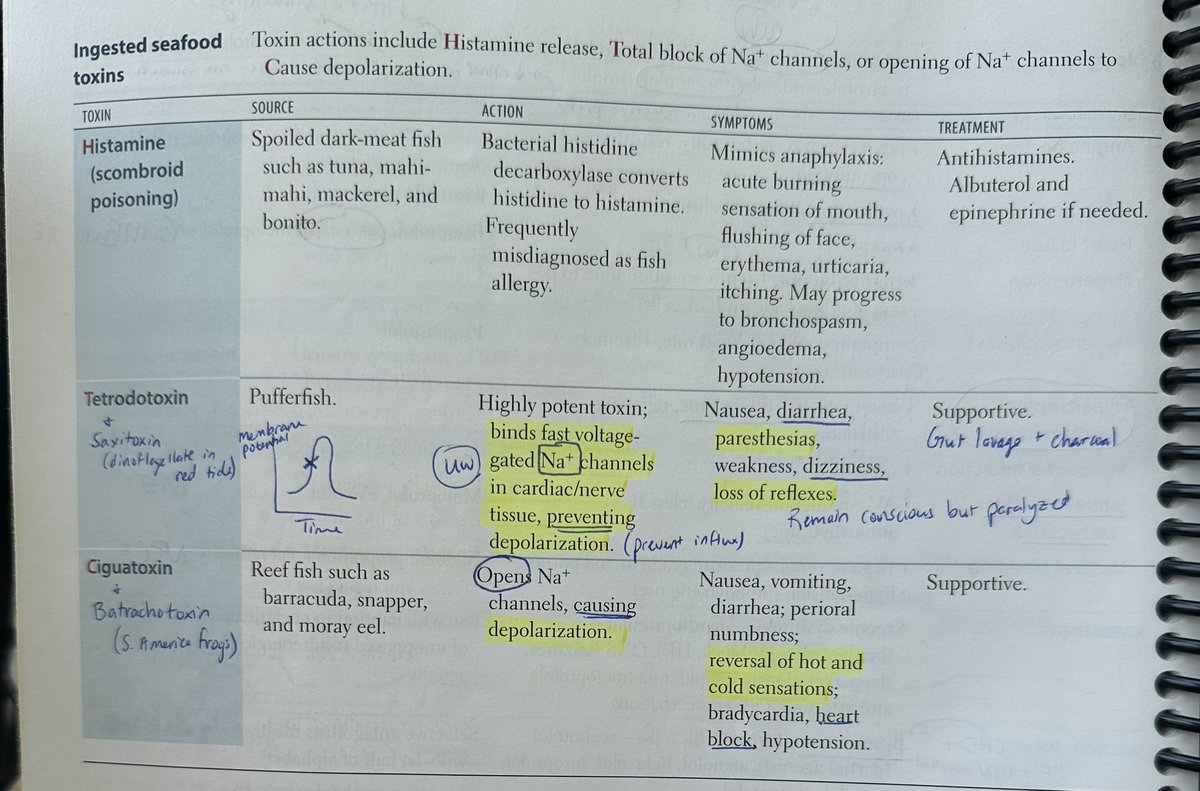 Ingested seafood
toxins
Toxin actions include Histamine release, Total block of Na⁺ channels, or opening of Na⁺ channels to
Cause depolarization.
TOXIN
SOURCE
ACTION
SYMPTOMS
TREATMENT
Histamine
(scombroid
poisoning)
Spoiled dark-meat fish
such as tuna, mahi-
mahi, mackerel, and
bonito.
Bacterial histidine
decarboxylase converts
histidine to histamine.
Frequently
misdiagnosed as fish
allergy.
Mimics anaphylaxis:
acute burning
sensation of mouth,
flushing of face,
erythema, urticaria,
itching. May progress
to bronchospasm,
angioedema,
hypotension.
Antihistamines.
Albuterol and
epinephrine if needed.
Tetrodotoxin
+
Saxitoxin
(dinoflagellate in
red tide)
Pufferfish.
membrane
potential
Time
UW
Highly potent toxin;
binds fast voltage-
gated Na⁺ channels
in cardiac/nerve
tissue, preventing
depolarization. (prevent influx)
Nausea, diarrhea,
paresthesias,
weakness, dizziness,
loss of reflexes.
Remain conscious but paralyzed
Supportive.
Gut lavage + charcoal
Ciguatoxin
+
Batrachotoxin
(S. America frogs)
Reef fish such as
barracuda, snapper,
and moray eel.
Opens Na⁺
channels, causing
depolarization.
Nausea, vomiting,
diarrhea; perioral
numbness;
reversal of hot and
cold sensations;
bradycardia, heart
block, hypotension.
Supportive.